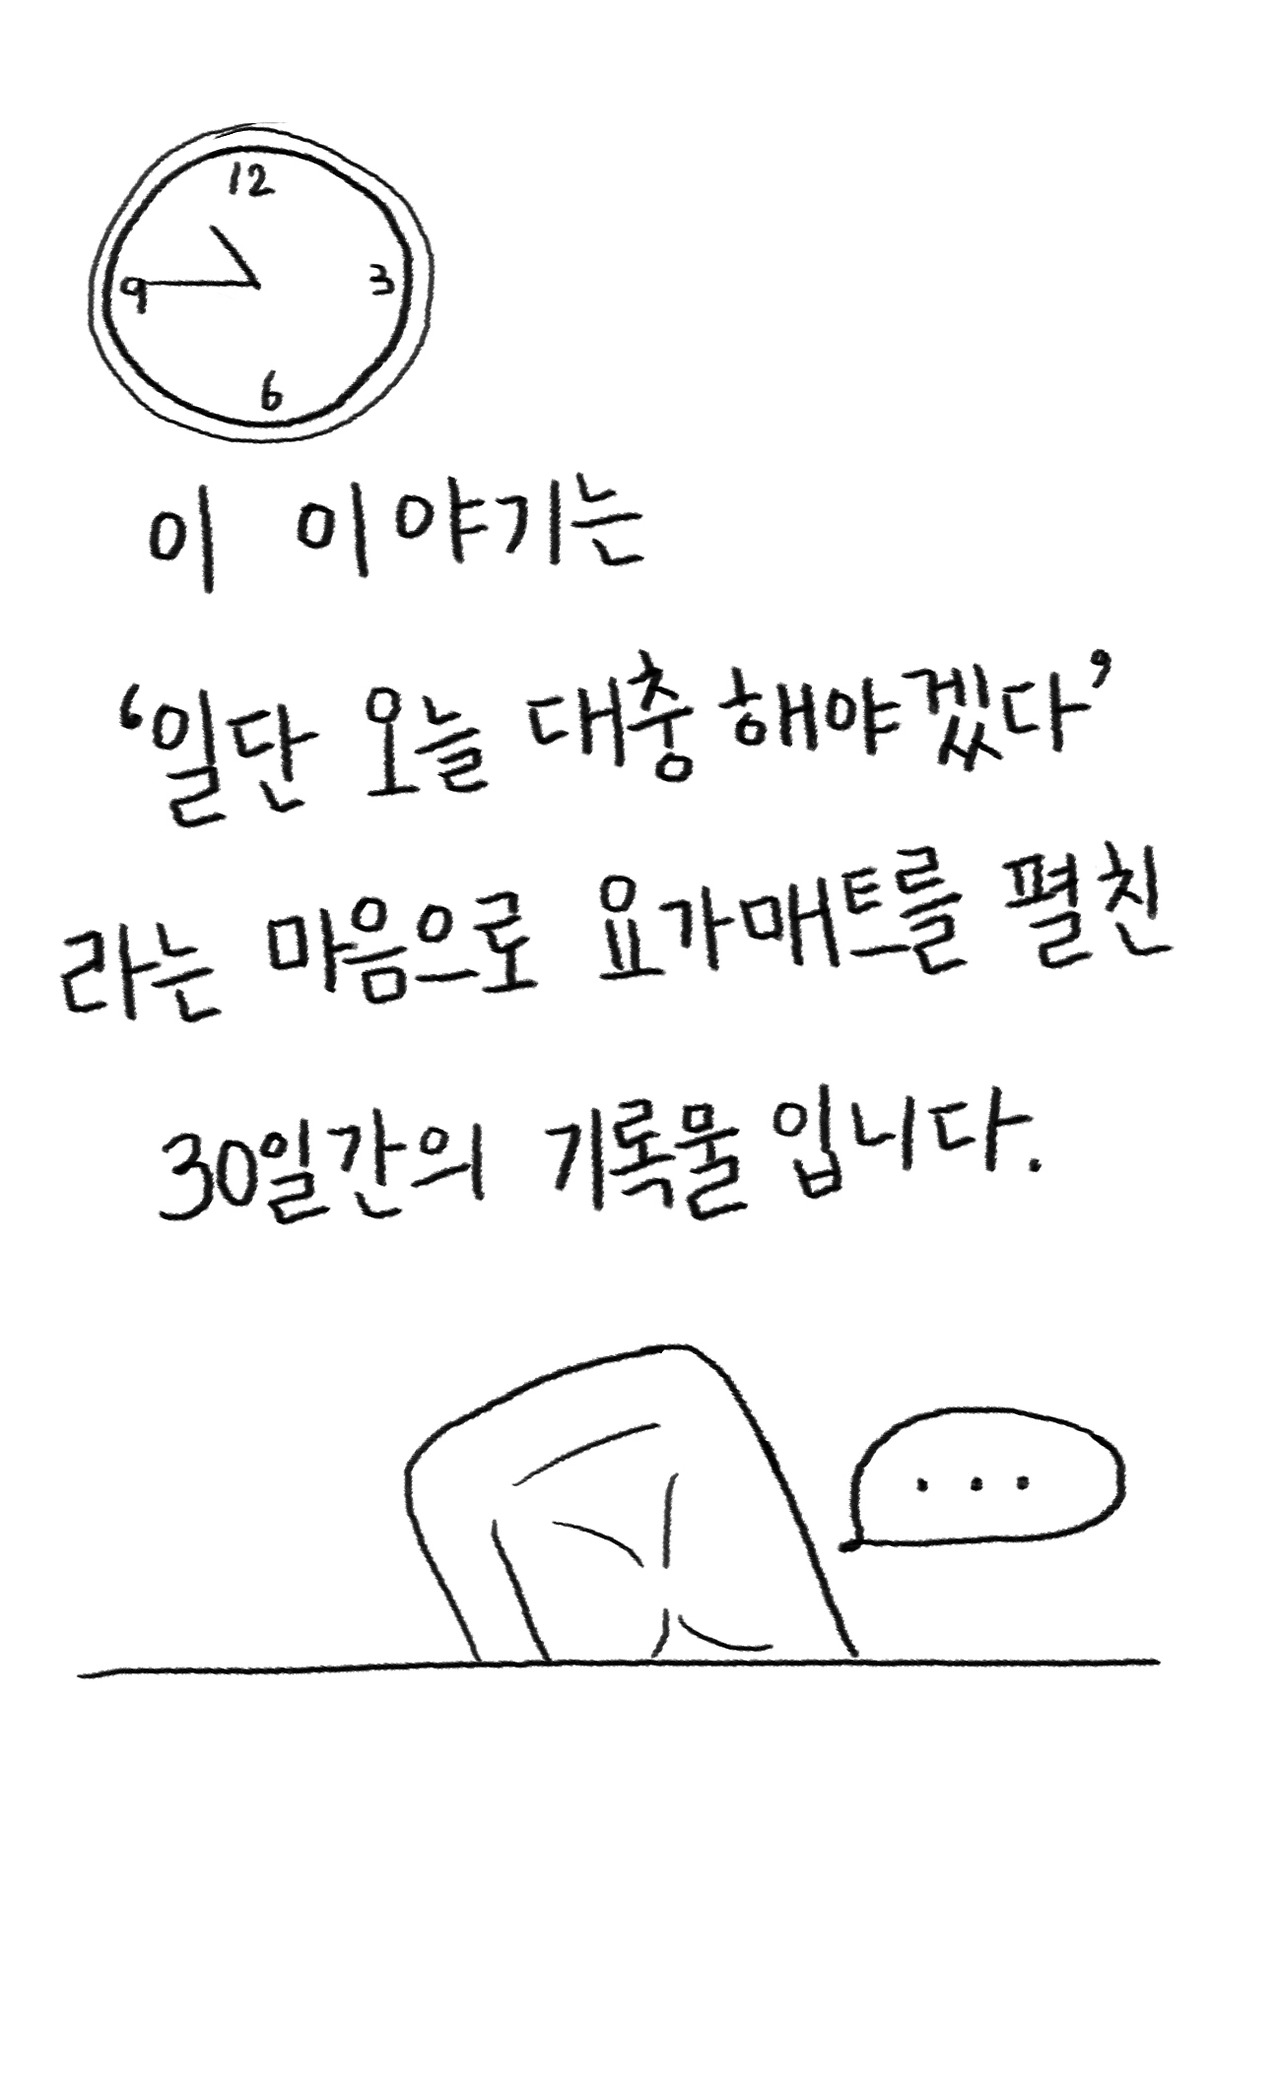 12
9 3
6
이 이야기는
‘일단 오늘 대충 해야겠다’
라는 마음으로 요가매트를 펼친
30일간의 기록물 입니다.
...